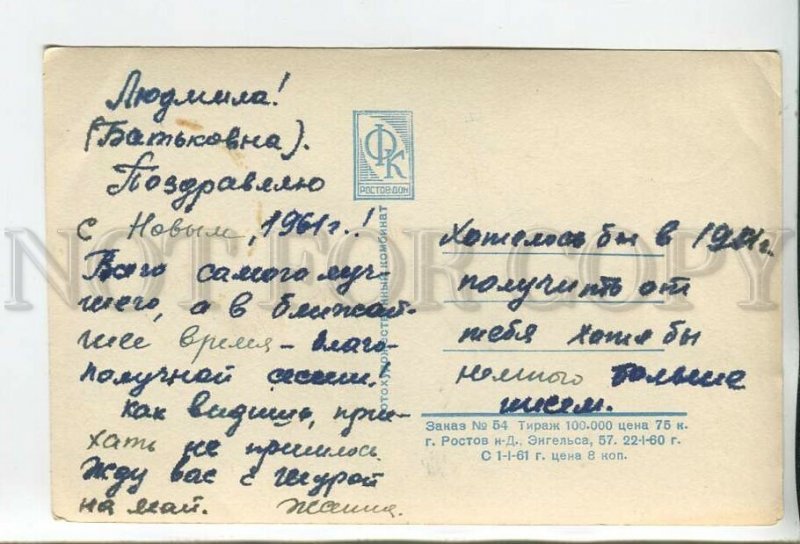 Людмила!
(Батьковна).
Поздравляю
с Новым, 1961г.!
Всего самого луч-
шего, а в ближай-
шее время – благо-
получной сессии!
Как видишь, прие-
хать не пришлось.
Жду вас с Шурой
на май. Жанна.
ФК
РОСТОВ-ДОН
ФОТОХУДОЖЕСТВЕННЫЙ КОМБИНАТ
Хотелось бы в 1961г.
получить от
тебя хотя бы
немного больше
писем.
Заказ № 54 Тираж 100.000 цена 75 к.
г. Ростов н-Д., Энгельса, 57. 22-I-60 г.
С 1-I-61 г. цена 8 коп.
NOT FOR COPY